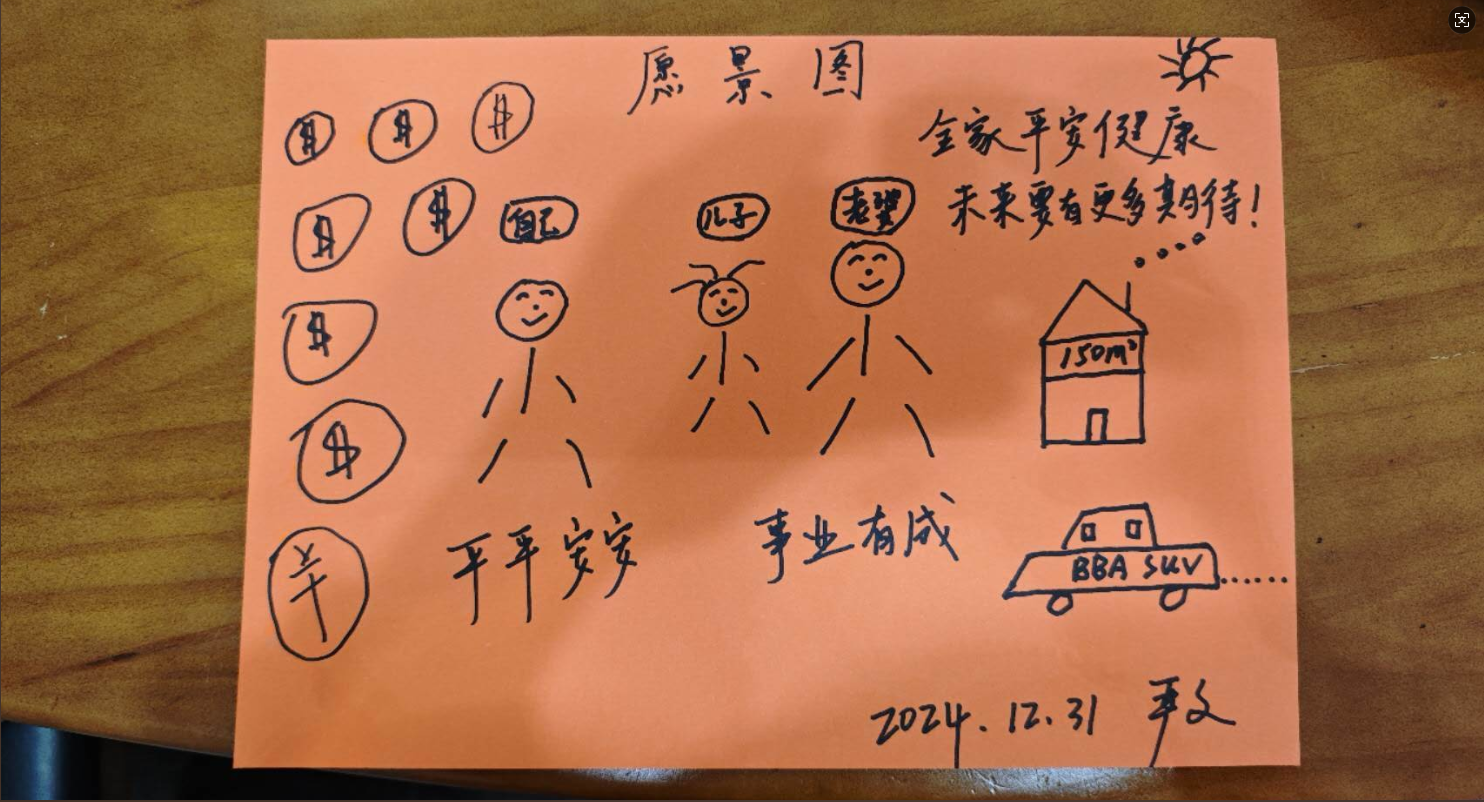 愿景图
全家平安健康
未来要有更多期待!
$ $ $
$ $
$
$
¥
自己
儿子
老婆
150m²
平平安安
事业有成
BBA SUV
2024.12.31